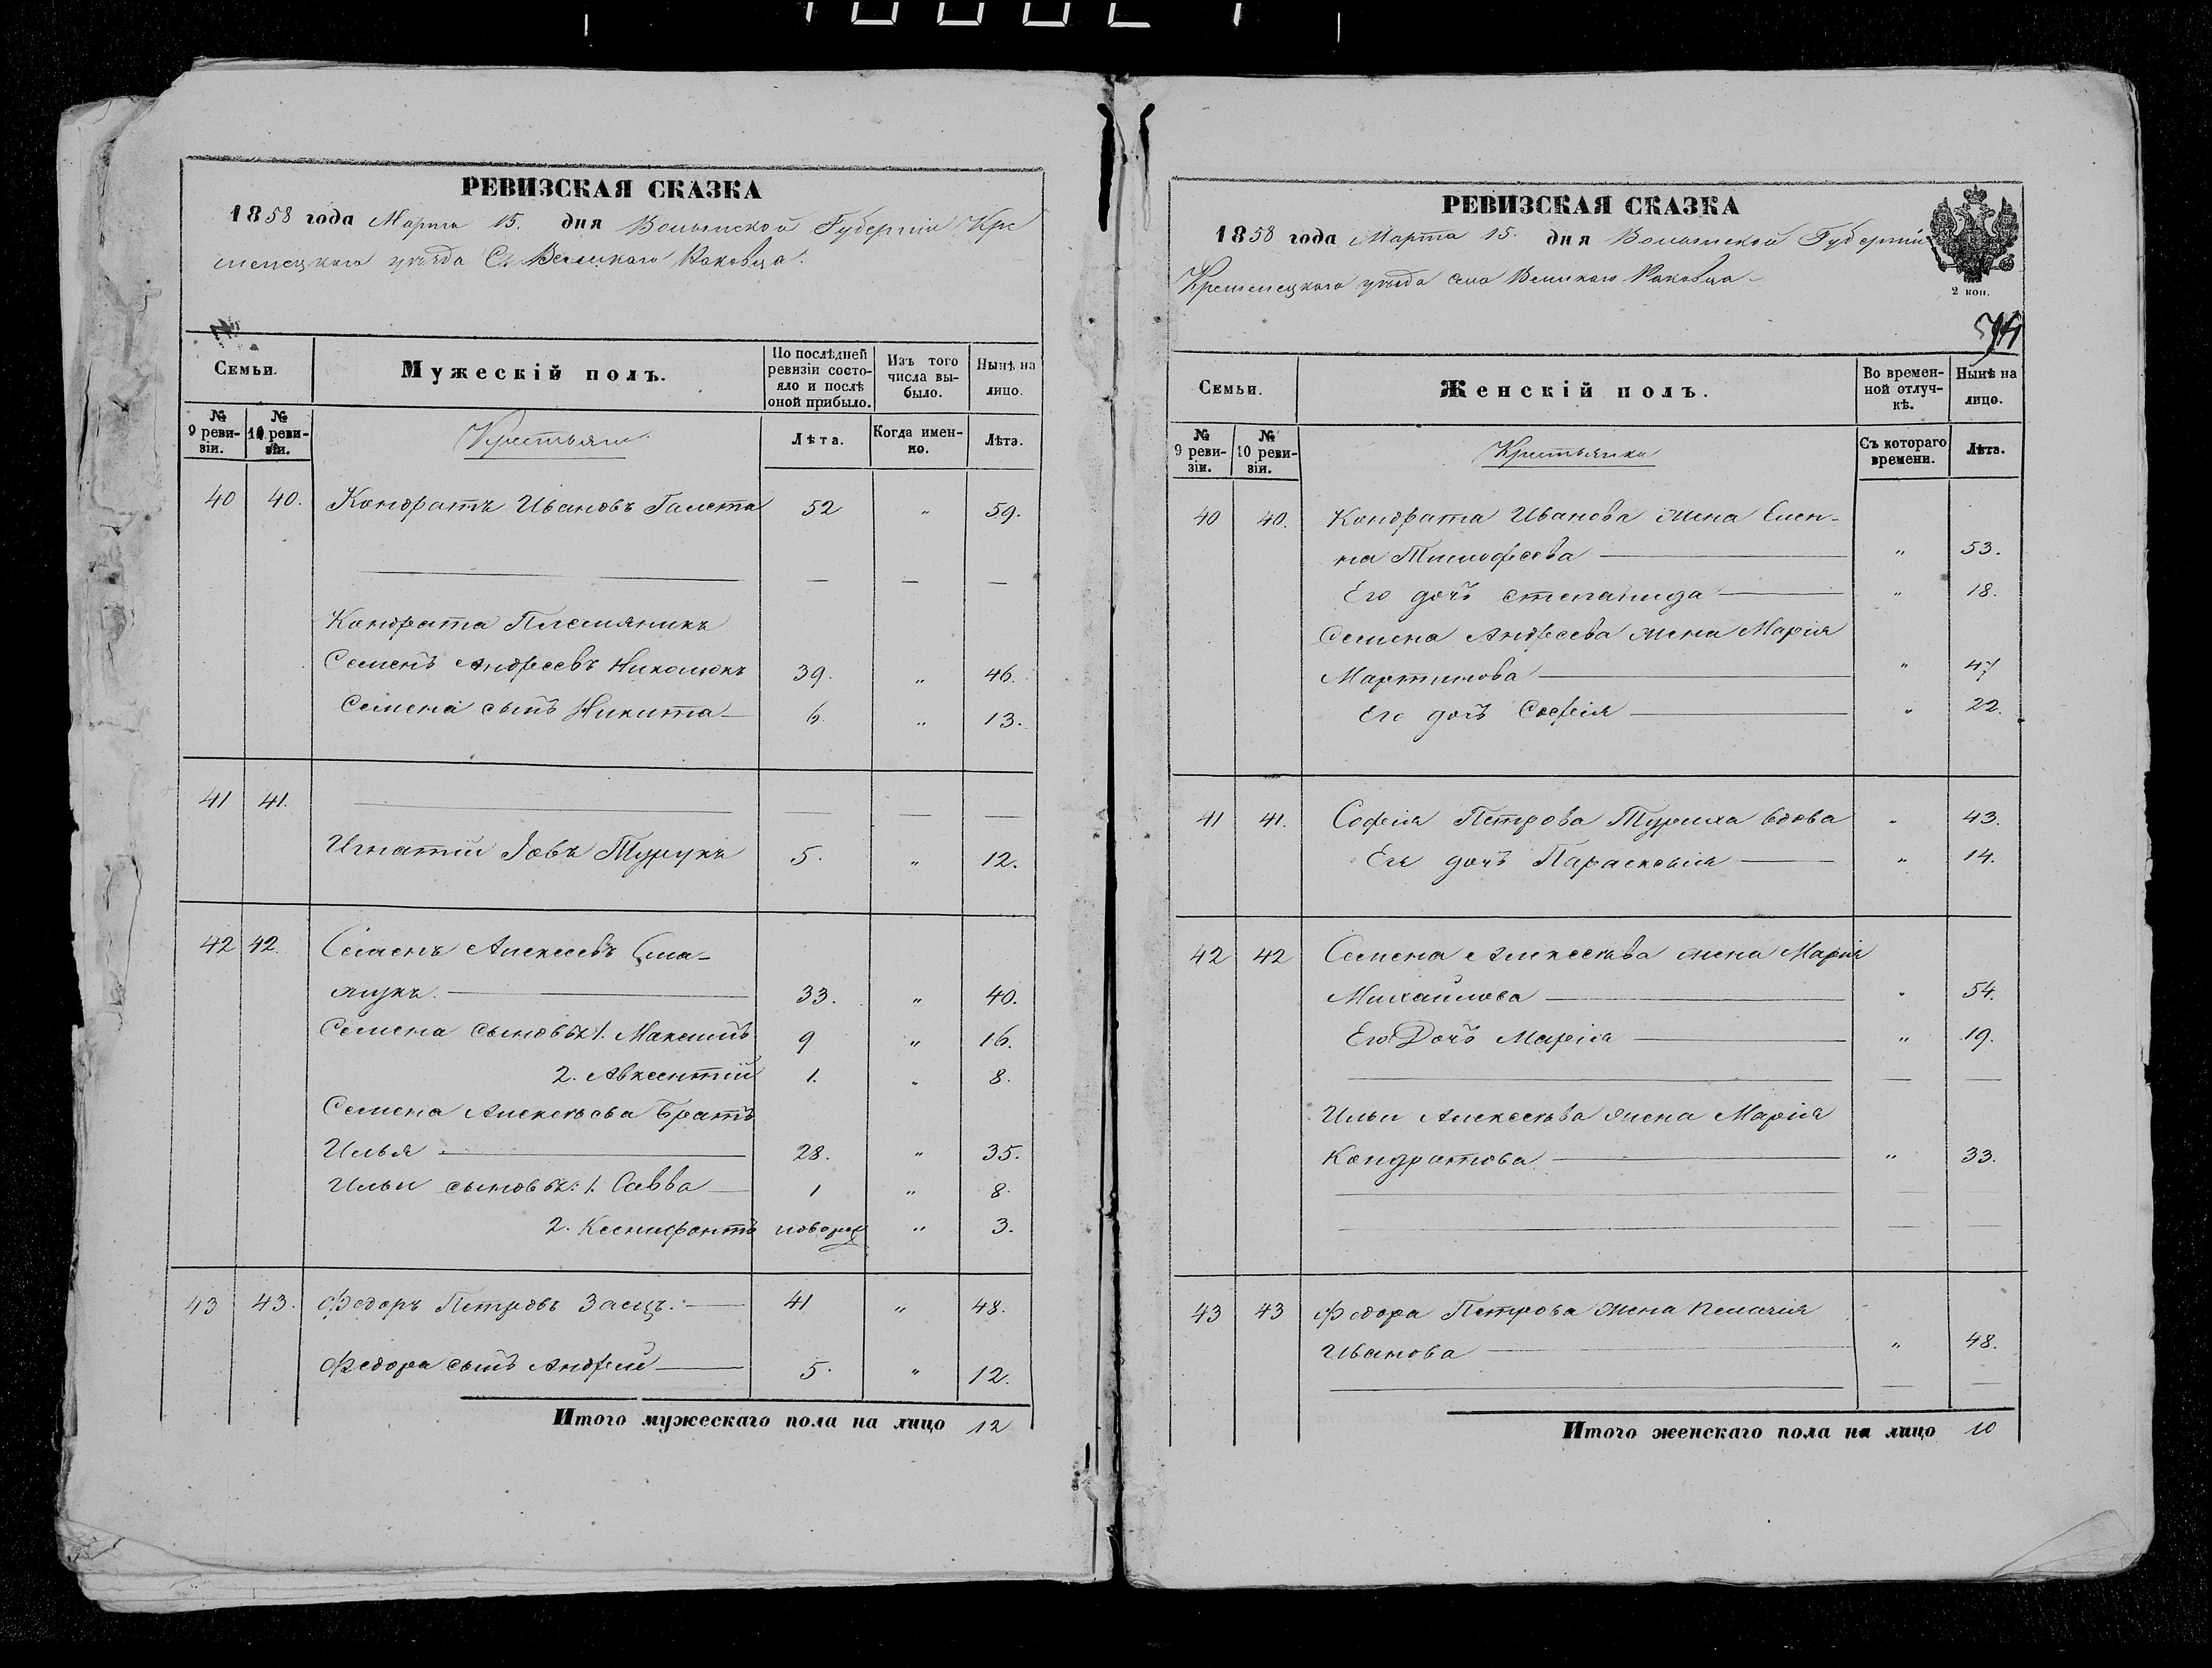 РЕВИЗСКАЯ СКАЗКА
1858 года Марта 15. дня Волынской Губерніи Кре
менецкаго уѣзда С. Великаго Раковца.
Семьи.
Мужескій полъ.
По послѣдней ревизіи состояло и послѣ оной прибыло.
Изъ того числа выбыло.
Нынѣ на лицо.
№ 9 ревизіи.
№ 10 ревизіи.
Крестьяне.
Лѣта.
Когда именно.
Лѣта.
40 40. Кондратъ Ивановъ Галета 52 " 59.
Кондрата Племянникъ
Семенъ Андреевъ Николюкъ 39. " 46.
Семена сынъ Никита 6. " 13.
41 41.
Игнатій Іовъ Турукъ 5. " 12.
42 42. Семенъ Алексеевъ
33. " 40.
Семена сыновья: 1. Максимъ 9 " 16.
2. Авксентій 1. " 8.
Семена Алексеева Братъ
Илья 28. " 35.
Ильи сыновья: 1. Савва 1 " 8.
2. Ксенифонтъ новорож " 3.
43 43. Федоръ Петровъ Заецъ. 41 " 48.
Федора сынъ Андрей 5. " 12.
Итого мужескаго пола на лицо 12
РЕВИЗСКАЯ СКАЗКА
1858 года Марта 15. дня Волынской Губерніи
Кременецкаго уѣзда села Великаго Раковца
2 коп.
Семьи.
Женскій полъ.
Во временной отлучкѣ.
Нынѣ на лицо.
№ 9 ревизіи.
№ 10 ревизіи.
Крестьянки
Съ котораго времени.
Лѣта.
40 40. Кондрата Иванова жена Елен-
на Тимофеева " 53.
Его дочь Степанида " 18.
Семена Андреева жена Марія
Мартинова " 47
Его дочь Софія " 22.
41 41. Софія Петрова Туриха вдова " 43.
Ея дочь Параскевія " 14.
42 42 Семена Алексеева жена Марія
Михайлова " 54.
Его Дочь Марія " 19.
Ильи Алексеева жена Марія
Кондратова " 33.
43 43 Федора Петрова жена Пелагія
Иванова " 48.
Итого женскаго пола на лицо 10